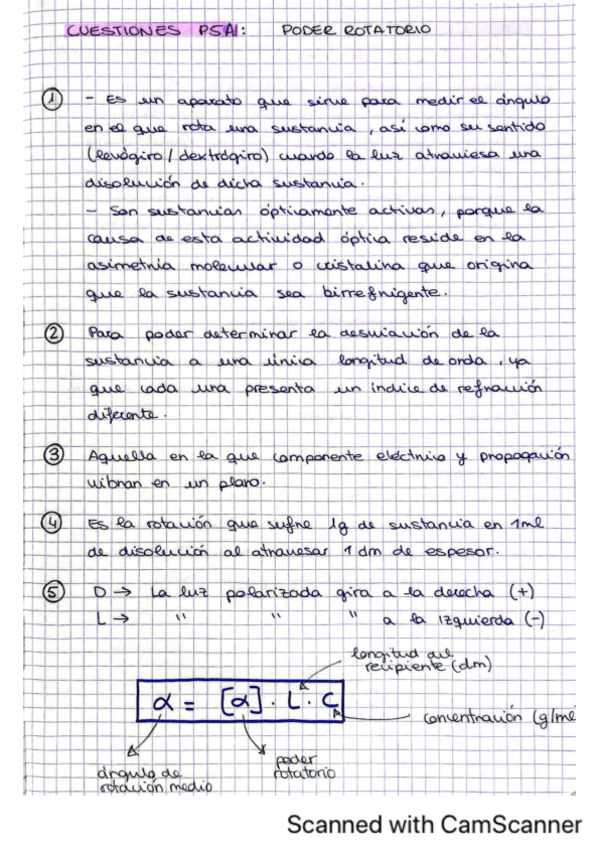 CUESTIONES PSA1: PODER ROTATORIO
① - Es un aparato que sirve para medir el ángulo
en el que rota una sustancia, así como su sentido
(levógiro / dextrógiro) cuando la luz atraviesa una
disolución de dicha sustancia.
- Son sustancias ópticamente activas, porque la
causa de esta actividad óptica reside en la
asimetría molecular o cristalina que origina
que la sustancia sea birrefrigente.
② Para poder determinar la desviación de la
sustancia a una única longitud de onda, ya
que cada una presenta un índice de refracción
diferente.
③ Aquella en la que componente eléctrico y propagación
vibran en un plano.
④ Es la rotación que sufre 1g de sustancia en 1ml
de disolución al atravesar 1 dm de espesor.
⑤ D → La luz polarizada gira a la derecha (+)
L → " " " a la izquierda (-)
longitud del
recipiente (dm)
α = [α] · L · C
concentración (g/ml
ángulo de
rotación medio
poder
rotatorio
Scanned with CamScanner